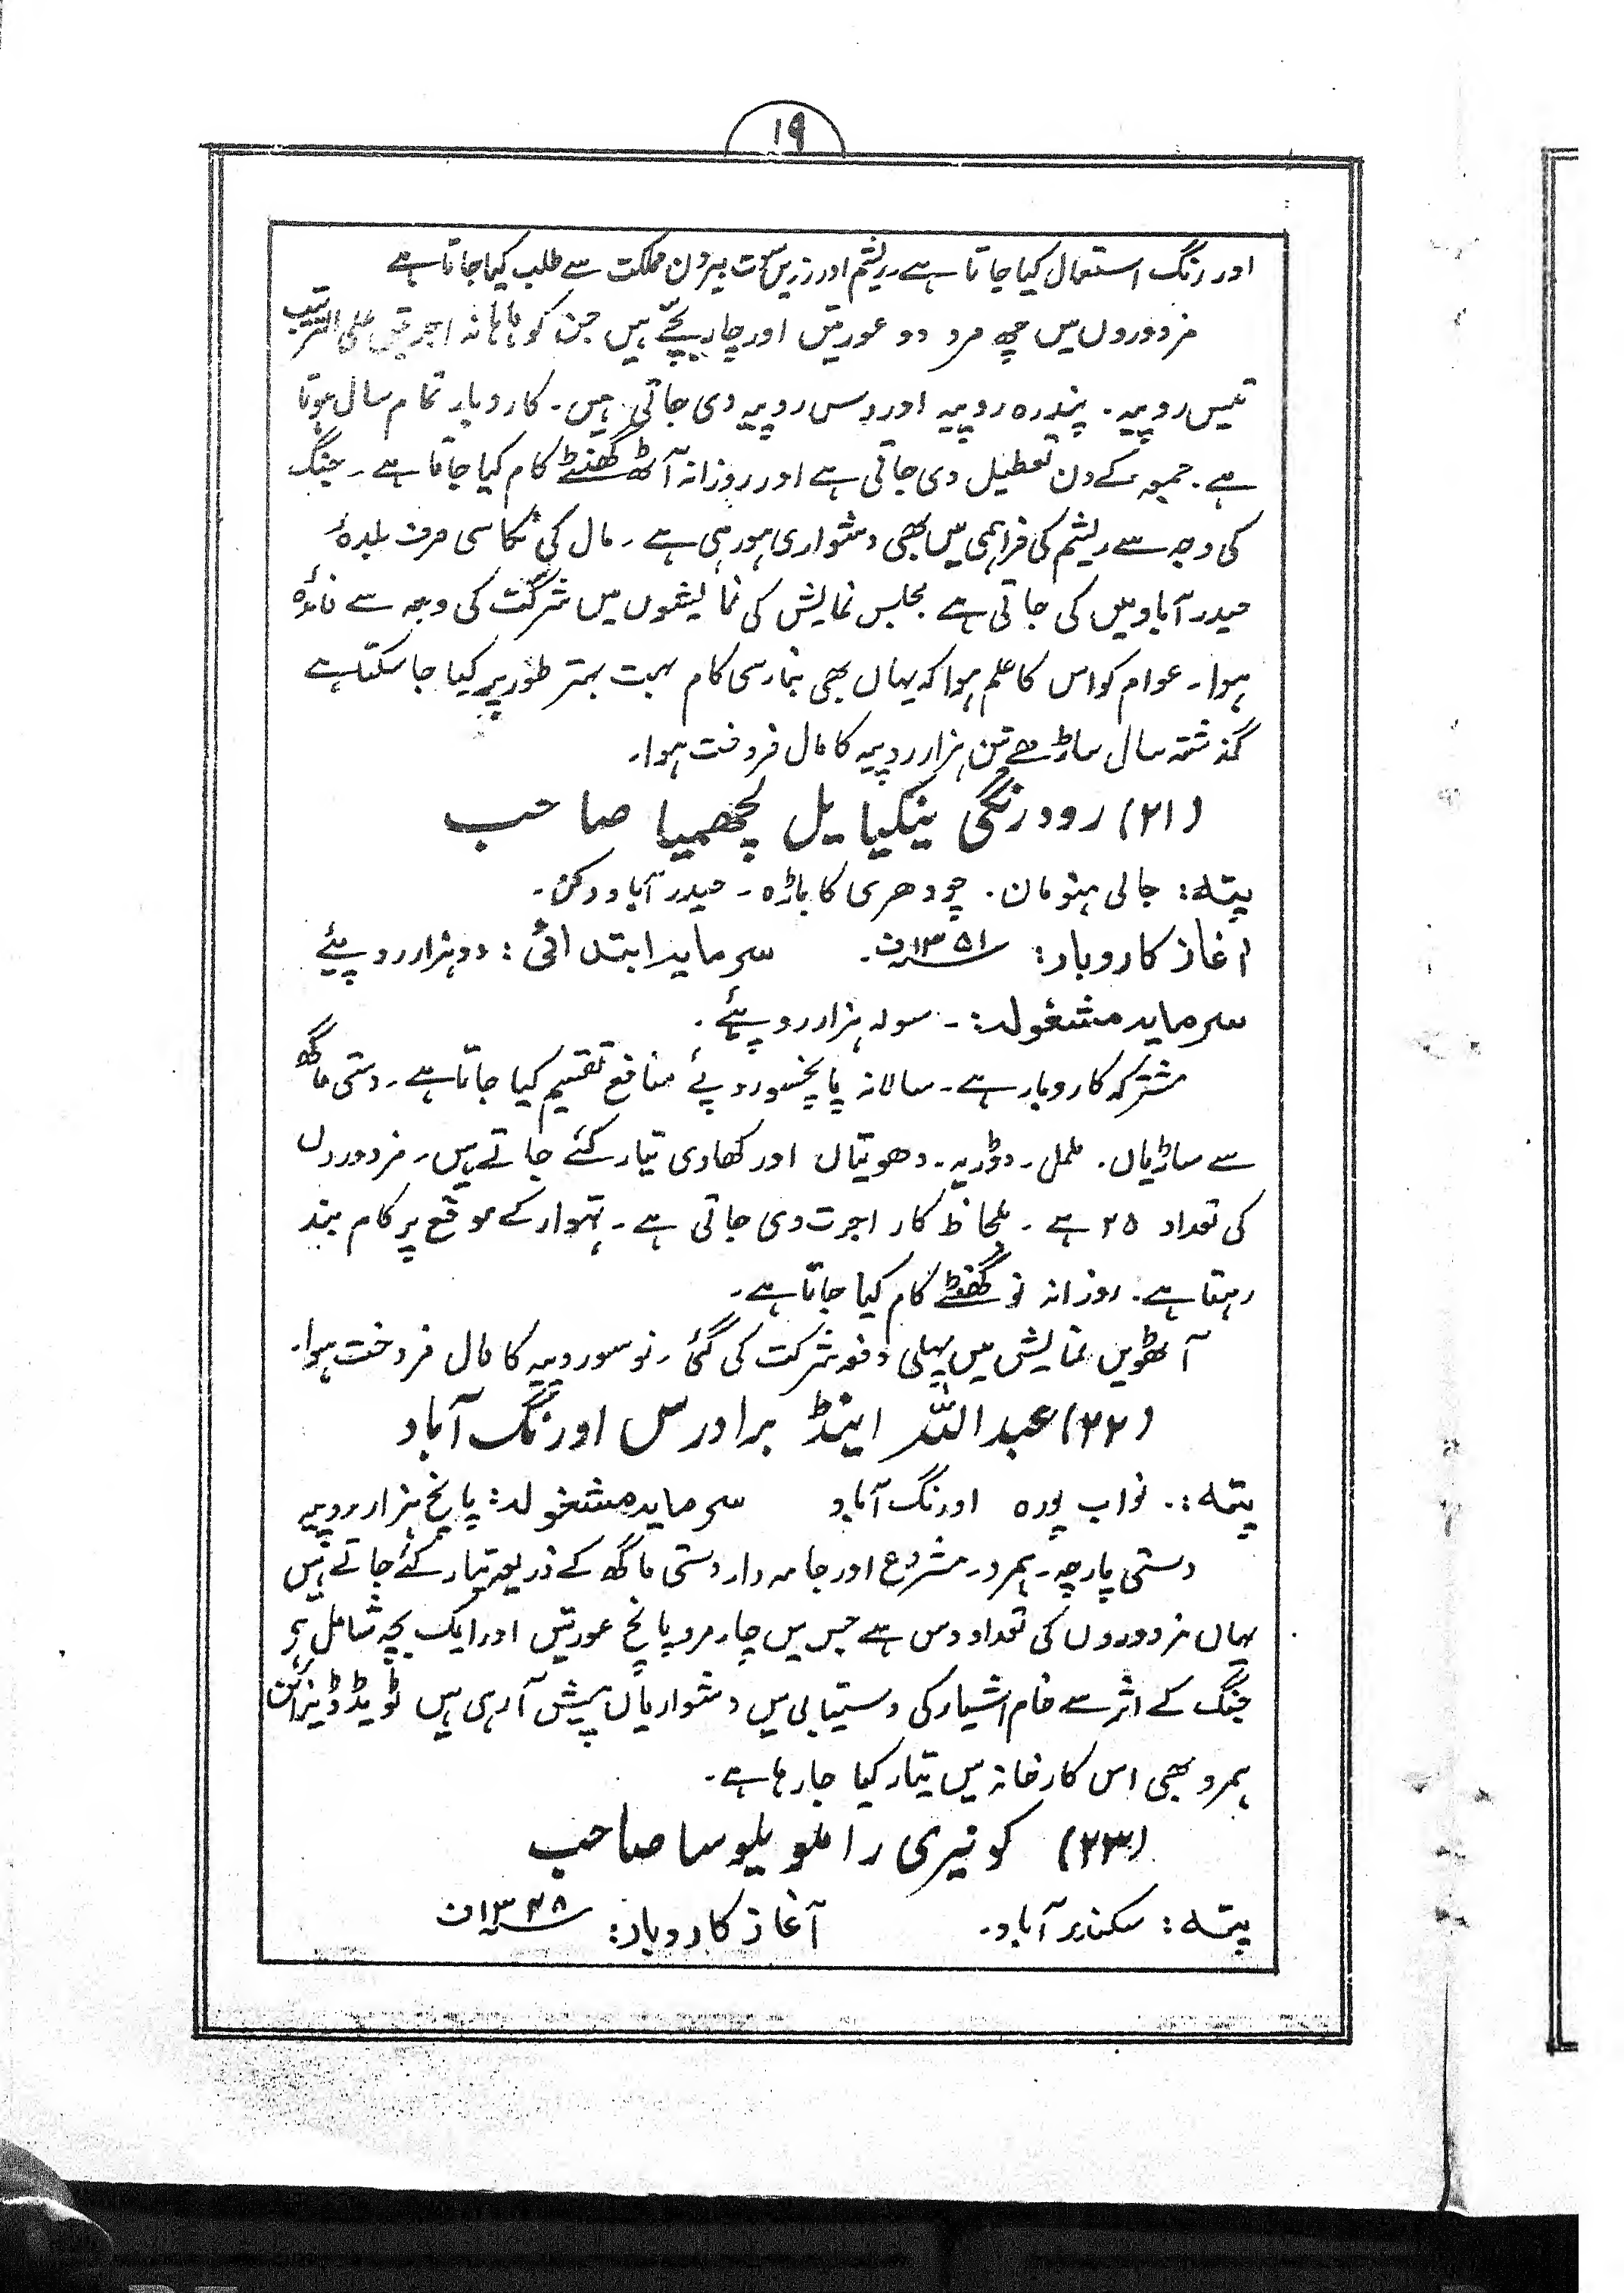 ۱۹
اور رنگ استعمال کیا جاتا ہے۔ ریشم اور زریں سوت بیرون مملکت سے طلب کیا جاتا ہے
مزدوروں میں چھ مرد دو عورتیں اور چار بچّے ہیں جن کو ماہانہ اجرتیں علی الترتیب
تیس روپیہ۔ پندرہ روپیہ اور دس روپیہ دی جاتی ہیں۔ کاروبار تمام سال ہوتا
ہے۔ جمعہ کے دن تعطیل دی جاتی ہے اور روزانہ آٹھ گھنٹے کام کیا جاتا ہے۔ جنگ
کی وجہ سے ریشم کی فراہمی میں بھی دشواری ہو رہی ہے۔ مال کی نکاسی صرف بلدۂ
حیدرآباد میں کی جاتی ہے مجلس نمایش کی نمایشوں میں شرکت کی وجہ سے فائدہ
ہوا۔ عوام کو اس کا علم ہوا کہ یہاں بھی بنارسی کام بہت بہتر طور پر کیا جا سکتا ہے
گذشتہ سال ساڑھے تین ہزار روپیہ کا مال فروخت ہوا۔
(۲۱) رودرنگی ینکیا یل لچھمیا صاحب
پتہ: جالی ہنومان۔ چودھری کا باڑہ۔ حیدرآباد دکن۔
آغاز کاروبار: سنہ ۱۳۵۱ف۔ سرمایہ ابتدائی: دو ہزار روپیئے
سرمایہ مشغولہ:۔ سولہ ہزار روپیئے۔
مشترکہ کاروبار ہے۔ سالانہ پانچسو روپئے منافع تقسیم کیا جاتا ہے۔ دستی ماگھ
سے ساڑیاں۔ ململ۔ ڈوریہ۔ دھوتیاں اور کھادی تیار کئے جاتے ہیں۔ مزدوروں
کی تعداد ۲۵ ہے۔ بلحاظ کار اجرت دی جاتی ہے۔ تہوار کے موقع پر کام بند
رہتا ہے۔ روزانہ نو گھنٹے کام کیا جاتا ہے۔
آٹھویں نمایش میں پہلی دفعہ شرکت کی گئی۔ نو سو روپیہ کا مال فروخت ہوا۔
(۲۲) عبداللہ اینڈ برادرس اورنگ آباد
پتہ:۔ نواب پورہ اورنگ آباد سرمایہ مشغولہ: پانچ ہزار روپیہ
دستی پارچہ۔ ہمرو۔ مشروع اور جامہ وار دستی ماگھ کے ذریعہ تیار کئے جاتے ہیں
یہاں مزدوروں کی تعداد دس ہے جس میں چار مرد پانچ عورتیں اور ایک بچہ شامل ہے
جنگ کے اثر سے خام اشیار کی دستیابی میں دشواریاں پیش آ رہی ہیں ٹویڈ ڈیزائن
ہمرو بھی اس کارخانہ میں تیار کیا جا رہا ہے۔
(۲۳) کونیری راملو یلوسا صاحب
پتہ: سکندرآباد۔ آغاز کاروبار: سنہ ۱۳۴۸ف